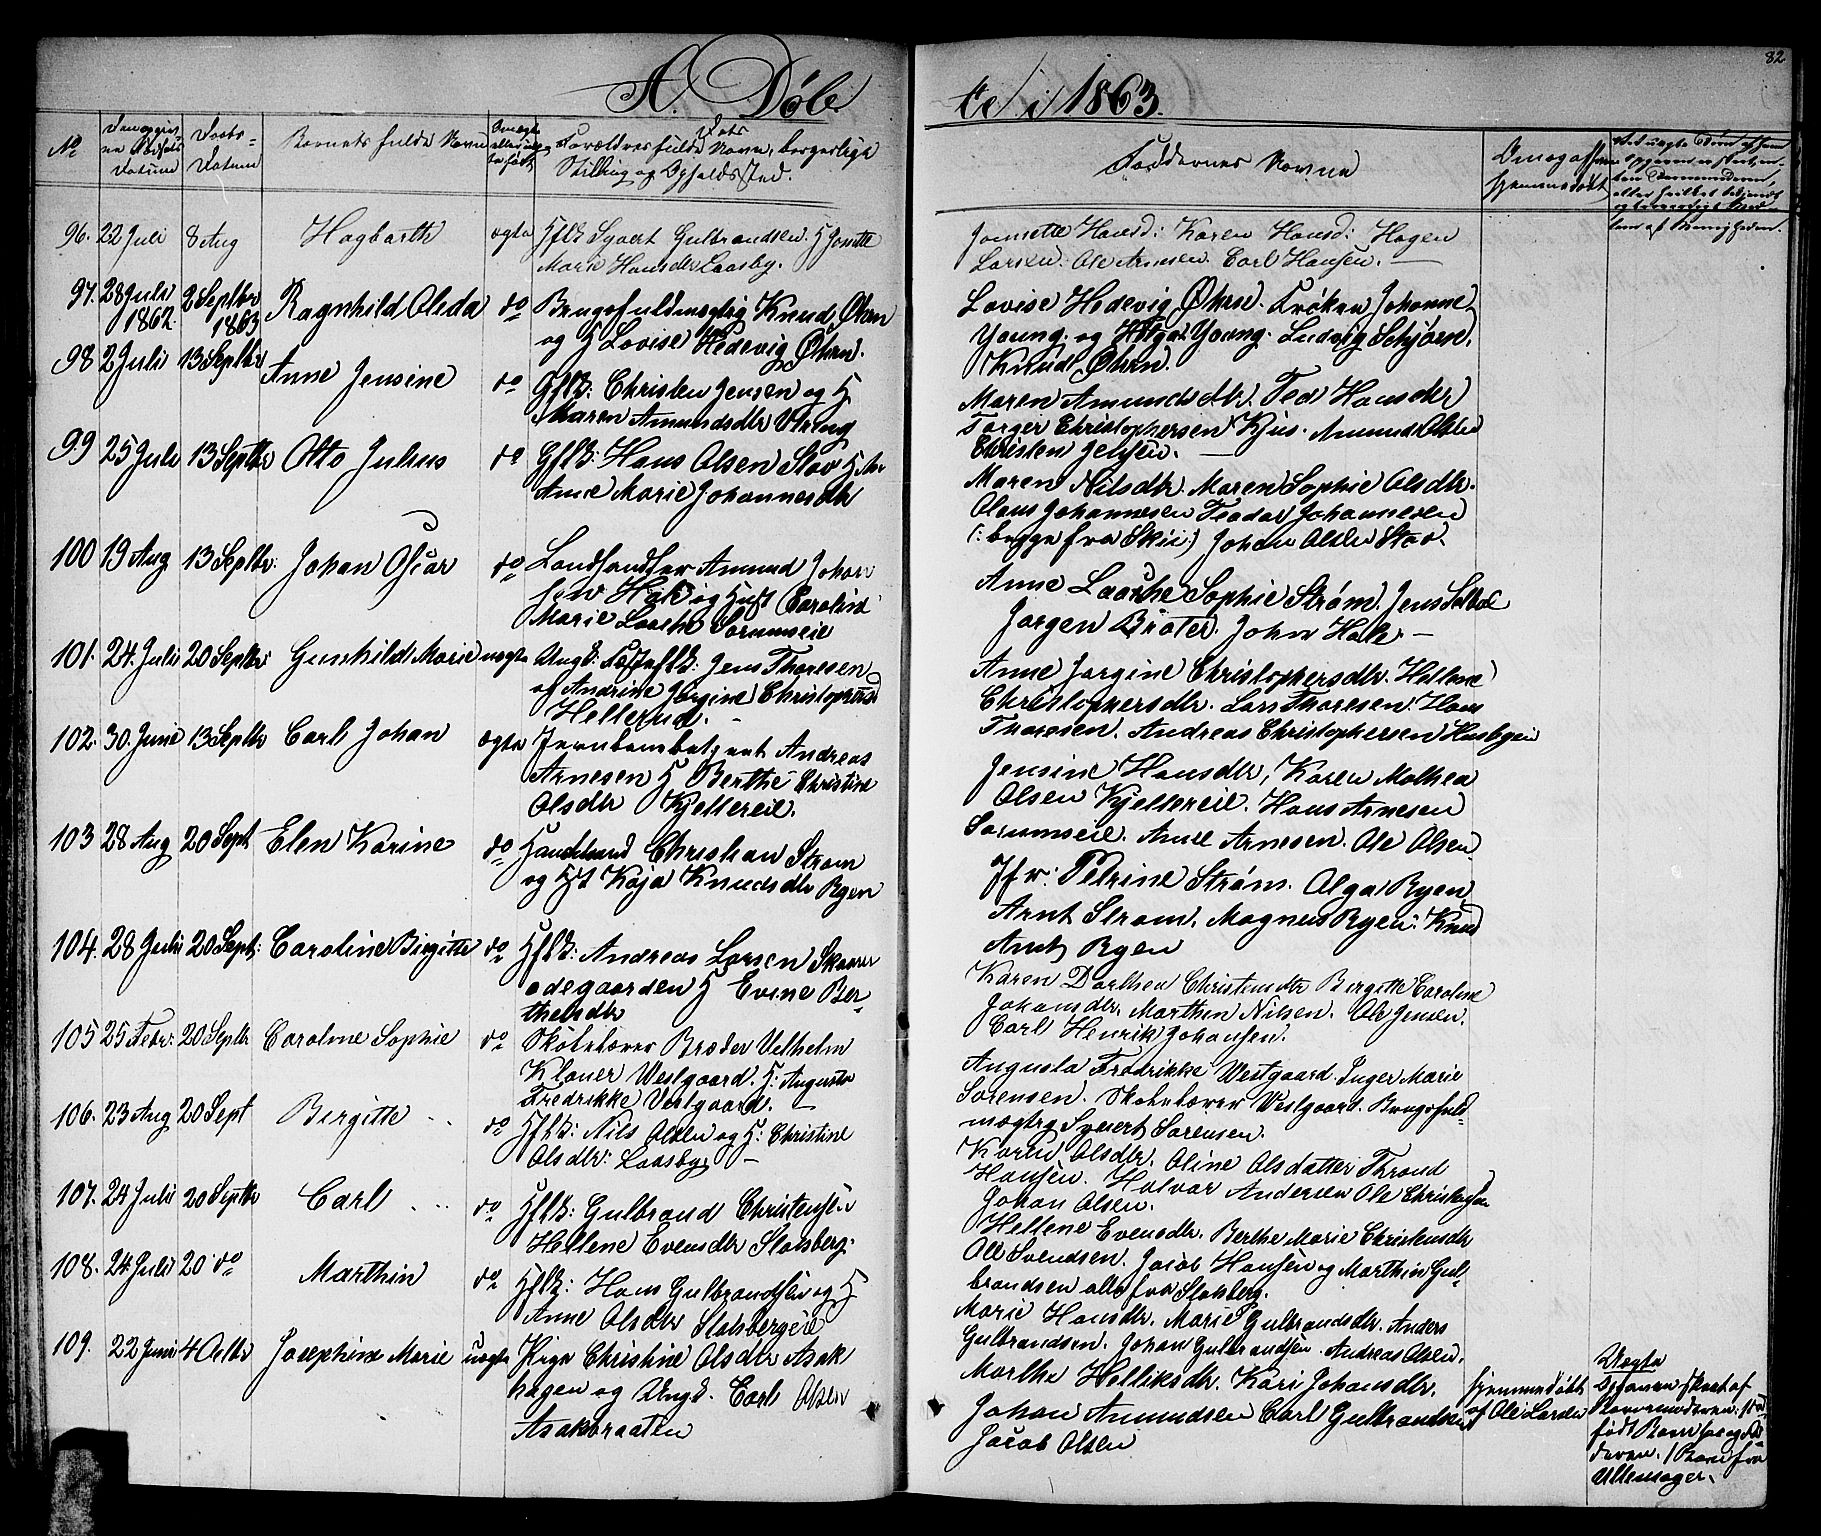 82
A. Døbte i 1863.
No
Børnets fulde Navn
Forældres fulde Navn, borgerlige
Stilling og Opholdssted.
Faddernes Navne
96. 22 Juli 8 Aug Hagbarth ægte Hflk Syvert Gulbrandsen. H Jonette
Marie Hansdr Laasby.
Jonnette Hansd: Karen Hansd: Hagen
Larsen. Ole Arnesen. Carl Hansen. —
97. 28 Juli 1862. 2 Septbr 1863 Ragnhild Alsda do Brugsfuldmægtig Knud Øhrn
og H Lovise Hedevig Øhrn.
Lovise Hedevig Øhrn. Frøken Johanne
Young. og Helga Young. Ludvig Schjøen.
Knud Øhrn.
98 2 Juli 13 Septbr Anne Jensine do Gflk: Christen Jensen og H
Maren Amundsdtr Vreng
Maren Amundsdtr. Tea Hansdtr
Torger Christophersen Kjus. Amund Olsen
Christen Jensen. —
99 25 Juli 13 Septbr Otto Julius do Gflk: Hans Olsen Stav H An
Anne Marie Johannesdtr
Maren Nilsdtr. Maren Sophie Olsdtr.
Olaus Johannesen Teodor Johannesen
(: begge fra Skii:) Johan Olsen Stav.
100 19 Aug 13 Septbr: Johan Oscar do Landhandler Amund Johan
sen Hak og Hust Caroline
Marie Laache Sørumseie
Anne Laache Sophie Strøm. Jens
Jørgen Broter. Johan Hak. —
101. 24. Juli 20 Septbr Gunhild Marie uægte Ungk: Jens Thoresen
af Andrine Jørgine Christophersd
Hellerud. —
Anne Jørgine Christophersdtr. Hellene
Christophersdtr. Lars Thoresen. Hans
Thoresen. Andreas Christophersen Husbyeie
102. 30. Juni 13 Septbr Carl Johan ægte Jernbanebetjent Andreas
Arnesen H Berthe Christine
Olsdtr Kjellereie.
Jensine Hansdtr, Karen Mathea
Olsen Kjellereie. Hans Arnesen
Sørumseie. Anne Arnesen. Ole Olsen.
103 28 Aug 20 Sept Elen Karine do Handelsmand Christian Strøm
og Hst Kaja Knudsdtr Ryen
Jfr: Petrine Strøm. Olga Ryen
Arnt Strøm. Magnus Ryen: Knud
Arntz Ryen
104. 28 Juli 20 Sept: Caroline Birgitte do Hflk: Andreas Larsen Skarer
ødegaarden H Evine Ber-
thelsdtr
Karen Dorthea Christiansdtr Birgitte Caroline
Johansdtr. Marthin Nilsen. Ole Jensen.
Carl Henrik Johansen.
105 25 Febr: 20 Septbr Caroline Sophie do Skolelærer Broder Vilhelm
Klouer Westgaard. H: Augusta
Fredrikke Vestgaard. —
Augusta Fredrikke Westgaard. Inger Marie
Sørensen. Skolelærer Westgaard. Brugsfuld-
mægtig Syvert Sørensen.
106. 23 Aug 20 Sept Birgitte do Hflk: Nils Olsen og H: Christine
Olsdtr: Laasby —
Karen Olsdtr. Oline Olsdatter Thrond
Hansen. Halvor Andersen Ole Christophersen
Johan Olsen.
107. 24 Juli 20 Septbr Carl do Hflk: Gulbrand Christensen
Hellene Evensdtr Slotsberg.
Hellene Evensdtr. Berthe Marie Christensdtr
Ole Svendsen. Jacob Hansen og Marthin Gul-
brandsen alle fra Slotsberg.
108. 24 Juli 20 do Marthin do Hflk: Hans Gulbrandsen og H
Anne Olsdtr Slotsbergeie
Marie Hansdtr. Marie Gulbrandsdtr. Anders
Gulbrandsen. Johan Gulbrandsen. Andreas Olsen.
109. 22 Juni 4 Octbr Josephine Marie uægte Pige Christine Olsdtr Asak
hagen og Ungk. Carl Olsen
Asakbraaten
Marthe Helliksdtr. Kari Johansdtr.
Johan Amundsen Carl Gulbrandsen
Jacob Olsen
hjemmedøbt
af Ole Larsen
Uægte
Barnefaderen. / Barn fra
Ullensager.